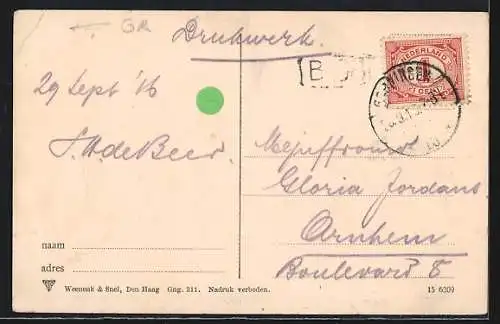 GR
Drukwerk.
B
NEDERLAND
1
CENT
29 Sept '16
S. H. de Beer
Mejuffrouw
Gloria Jordans
Arnhem
Boulevard 8
naam
adres
Weenenk & Snel, Den Haag Gng. 211. Nadruk verboden.
15 6209